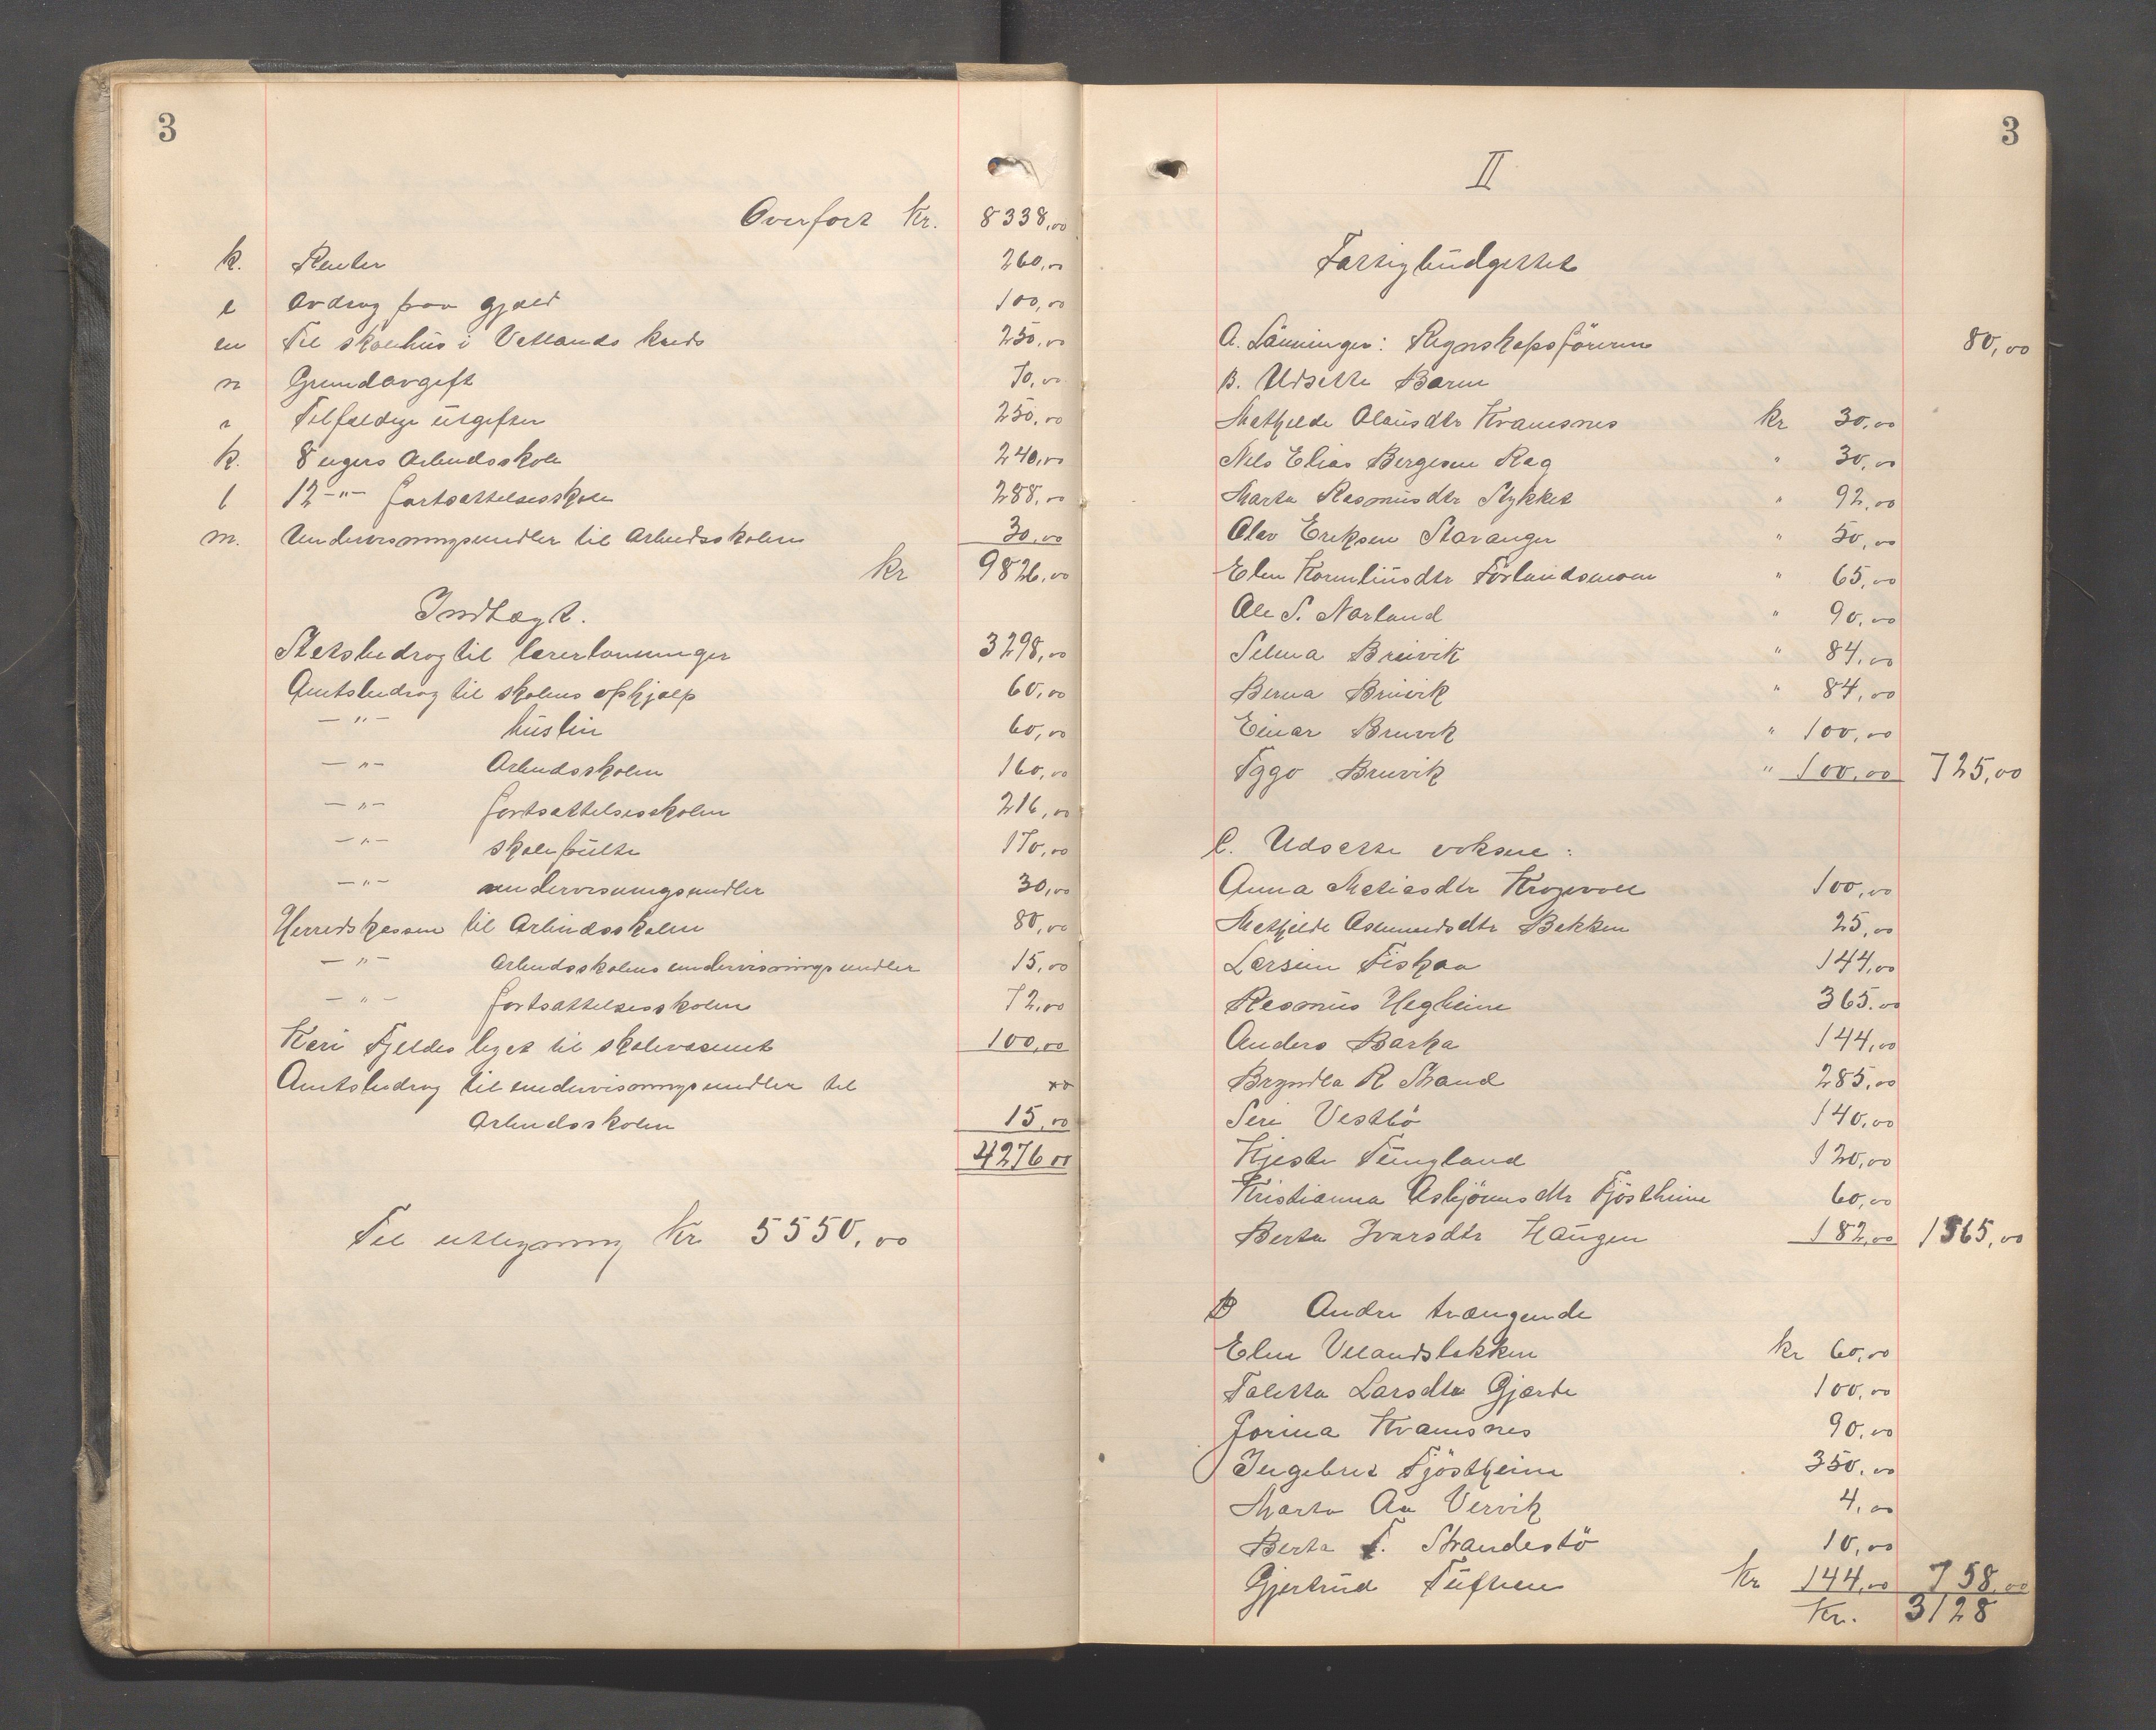 3
Overført Kr. 8338,00
k. Renter 260,00
l Avdrag paa gjæld 100,00
m Til skolehus i Vatlands kreds 250,00
n Grundavgift 70,00
Tilfældige utgifter 250,00
k. 8 ugers Arbeidsskole 240,00
l 12 -"- fortsættelsesskole 288,00
m. Undervisningsmidler til Arbeidsskolen 30,00
kr 9826,00
Indtægt.
Statsbidrag til lærerlønninger 3298,00
Amtsbidrag til skolens ophjælp 60,00
-"- huslin 60,00
-"- Arbeidsskolen 160,00
-"- fortsættelsesskolen 216,00
-"- skolepulte 170,00
-"- undervisningsmidler 30,00
Herredskassen til Arbeidsskolen 80,00
-"- Arbeidsskolens undervisningsmidler 15,00
-"- fortsættelsesskolen 72,00
Kari Fjeldes legat til skolevæsenet 100,00
Amtsbidrag til undervisningsmidler til
Arbeidsskolen 15,00
4276 00
Til utligning Kr 5550,00
3
II
Fattigbudgettet
A. Lönninger: Regnskapsföreren 80,00
B. Udsatte Barn
Mathilde Olausdtr Kvamsnes kr 30,00
Nels Elias Bergesen Rag " 30,00
Marta Rasmusdtr Stykket " 92,00
Olav Eriksen Stavanger " 50,00
Elen Kornliusdtr Förlandsmoen " 65,00
Ole S. Norland " 90,00
Selma Breivik " 84,00
Berna Breivik " 84,00
Einar Breivik " 100,00
Tggo Breivik " 100,00 725,00
C. Udsatte voksne:
Anna Matiasdtr Krogevoll 100,00
Mathilde Asmundsdtr Bakken 25,00
Larsine Fiskaa 144,00
Rasmus Hegheim 365.00
Anders Barka 144,00
Bryndla R Strand 285,00
Seri Vestbö 140,00
Kjesti Tungland 120,00
Kristianna Asbjörnsdtr Fjöstheim 60,00
Berta Ivarsdtr Haugen 182,00 1565,00
D Andre trængende
Elen Velandsbakken kr 60,00
Taletta Larsdtr Gjærde 100,00
Jorina Kvamsnes 90,00
Ingebret Fjöstheim 350,00
Marta Aa Vervik 4,00
Berta T. Strandestö 10,00
Gjertrud Tuften kr 144,00 758,00
Kr. 3128